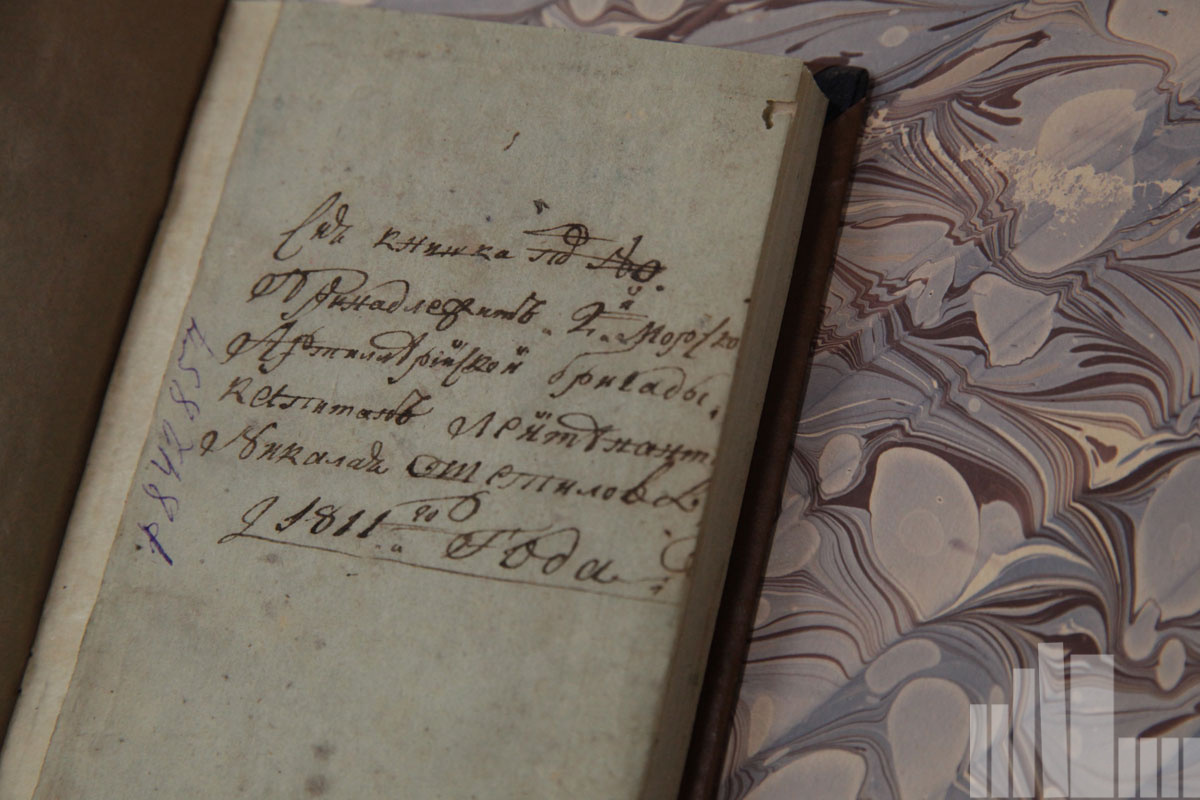 Сия книжка
Принадлежитъ 2й Морско
Артиллерїйской бригады.
капитанъ Лейтенант
Николая Щетилова
1811го Года
р842857